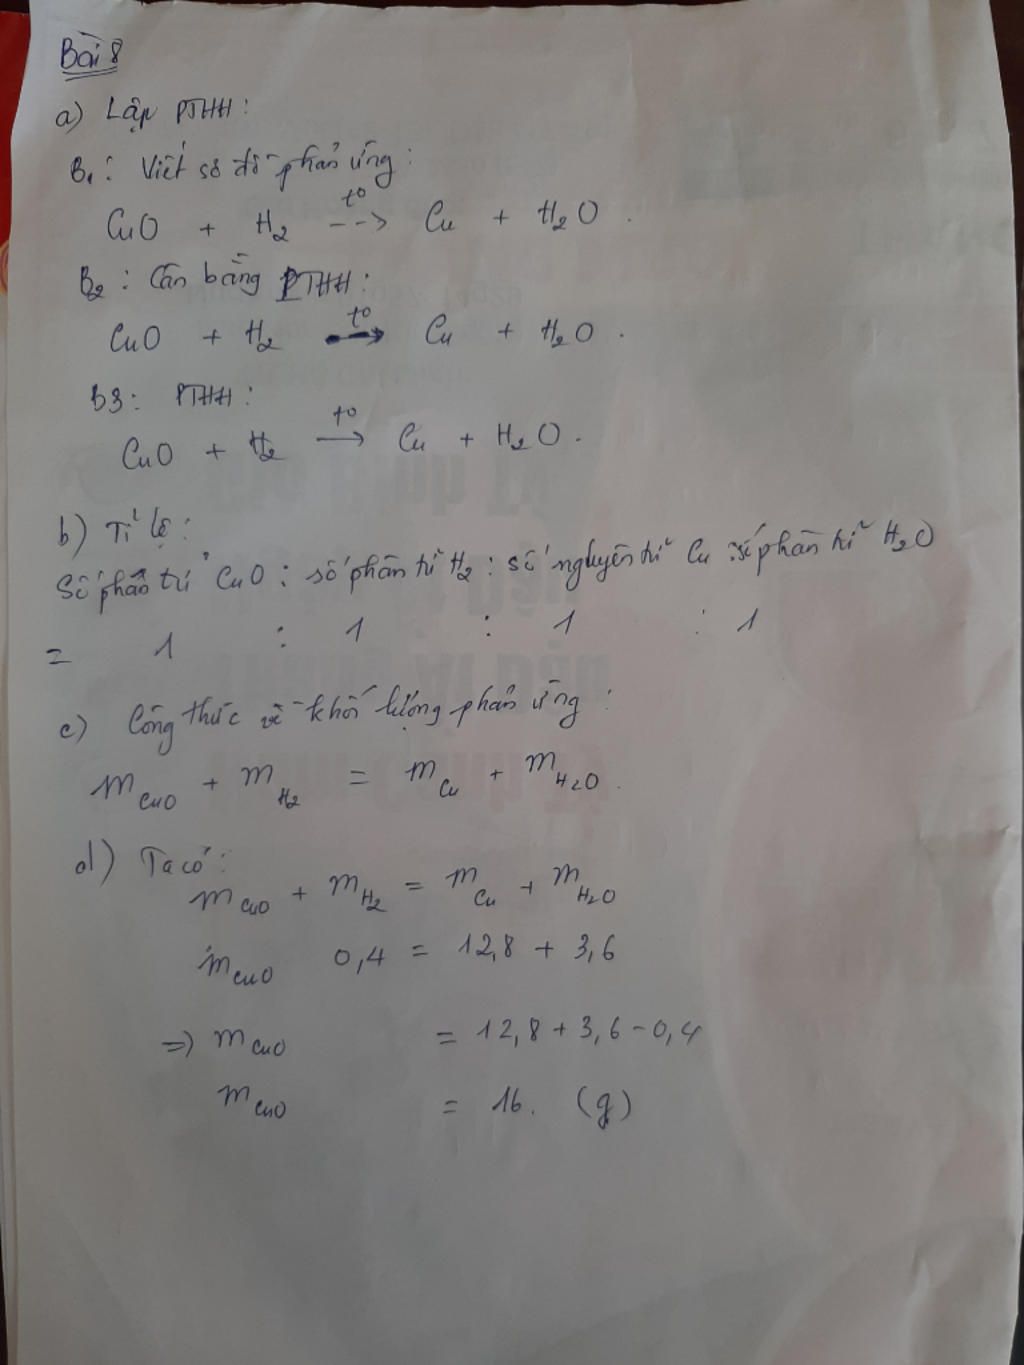 Bài 8
a) Lập PTHH:
B1: Viết sơ đồ phản ứng:
CuO + H2 --t°--> Cu + H2O.
B2: Cân bằng PTHH:
CuO + H2 t°→ Cu + H2O.
B3: PTHH:
CuO + H2 t°→ Cu + H2O.
b) Tỉ lệ:
Số phân tử CuO : số phân tử H2 : số nguyên tử Cu : số phân tử H2O
= 1 : 1 : 1 : 1
c) Công thức về khối lượng phản ứng:
mCuO + mH2 = mCu + mH2O.
d) Ta có:
mCuO + mH2 = mCu + mH2O
mCuO 0,4 = 12,8 + 3,6
=> mCuO = 12,8 + 3,6 - 0,4
mCuO = 16. (g)